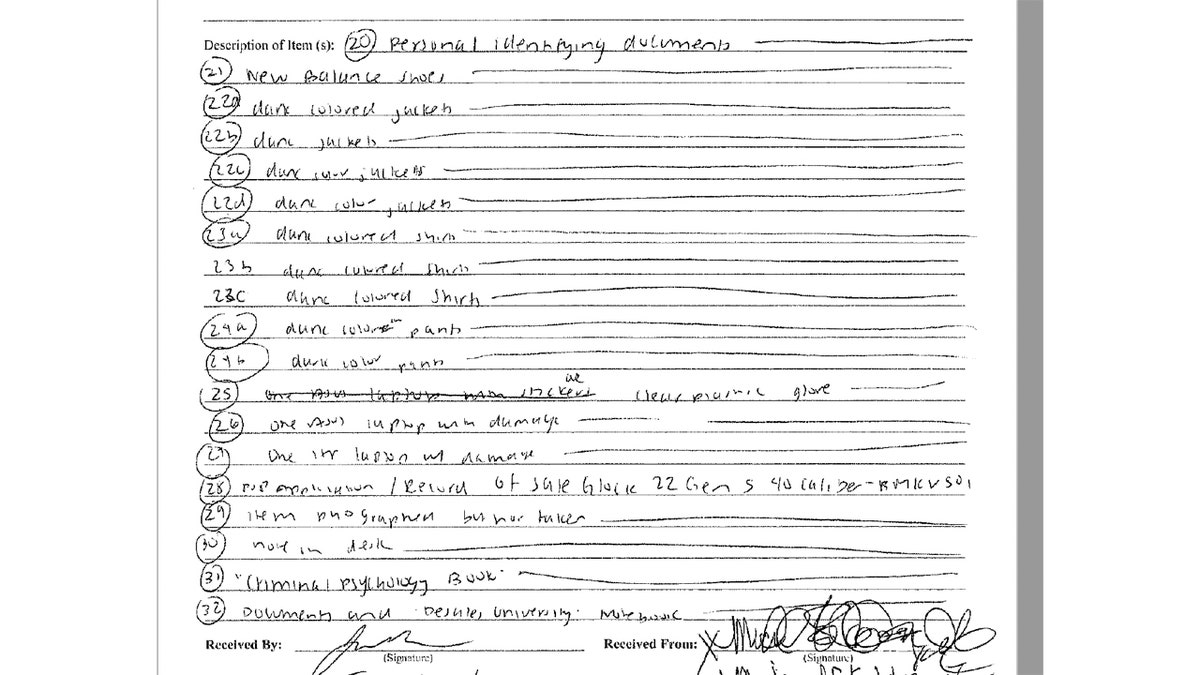 Description of Item (s): 20 Personal identifying documents
21 New Balance shoes
22a dark colored jackets
22b dark jackets
22c dark color jackets
22d dark color jackets
23a dark colored shirts
23b dark colored shirts
23c dark colored shirts
24a dark color pants
24b dark color pants
25 one Asus laptop with stickers clear plastic glove
26 one Asus laptop with damage
27 one laptop w/ damage
28 application / Record of Sale Glock 22 Gen 5 40 caliber -
29 item photographed but not taken
30 note in desk
31 "Criminal Psychology Book"
32 Documents and Desales University Notebook
Received By: Received From: X
(Signature) (Signature)